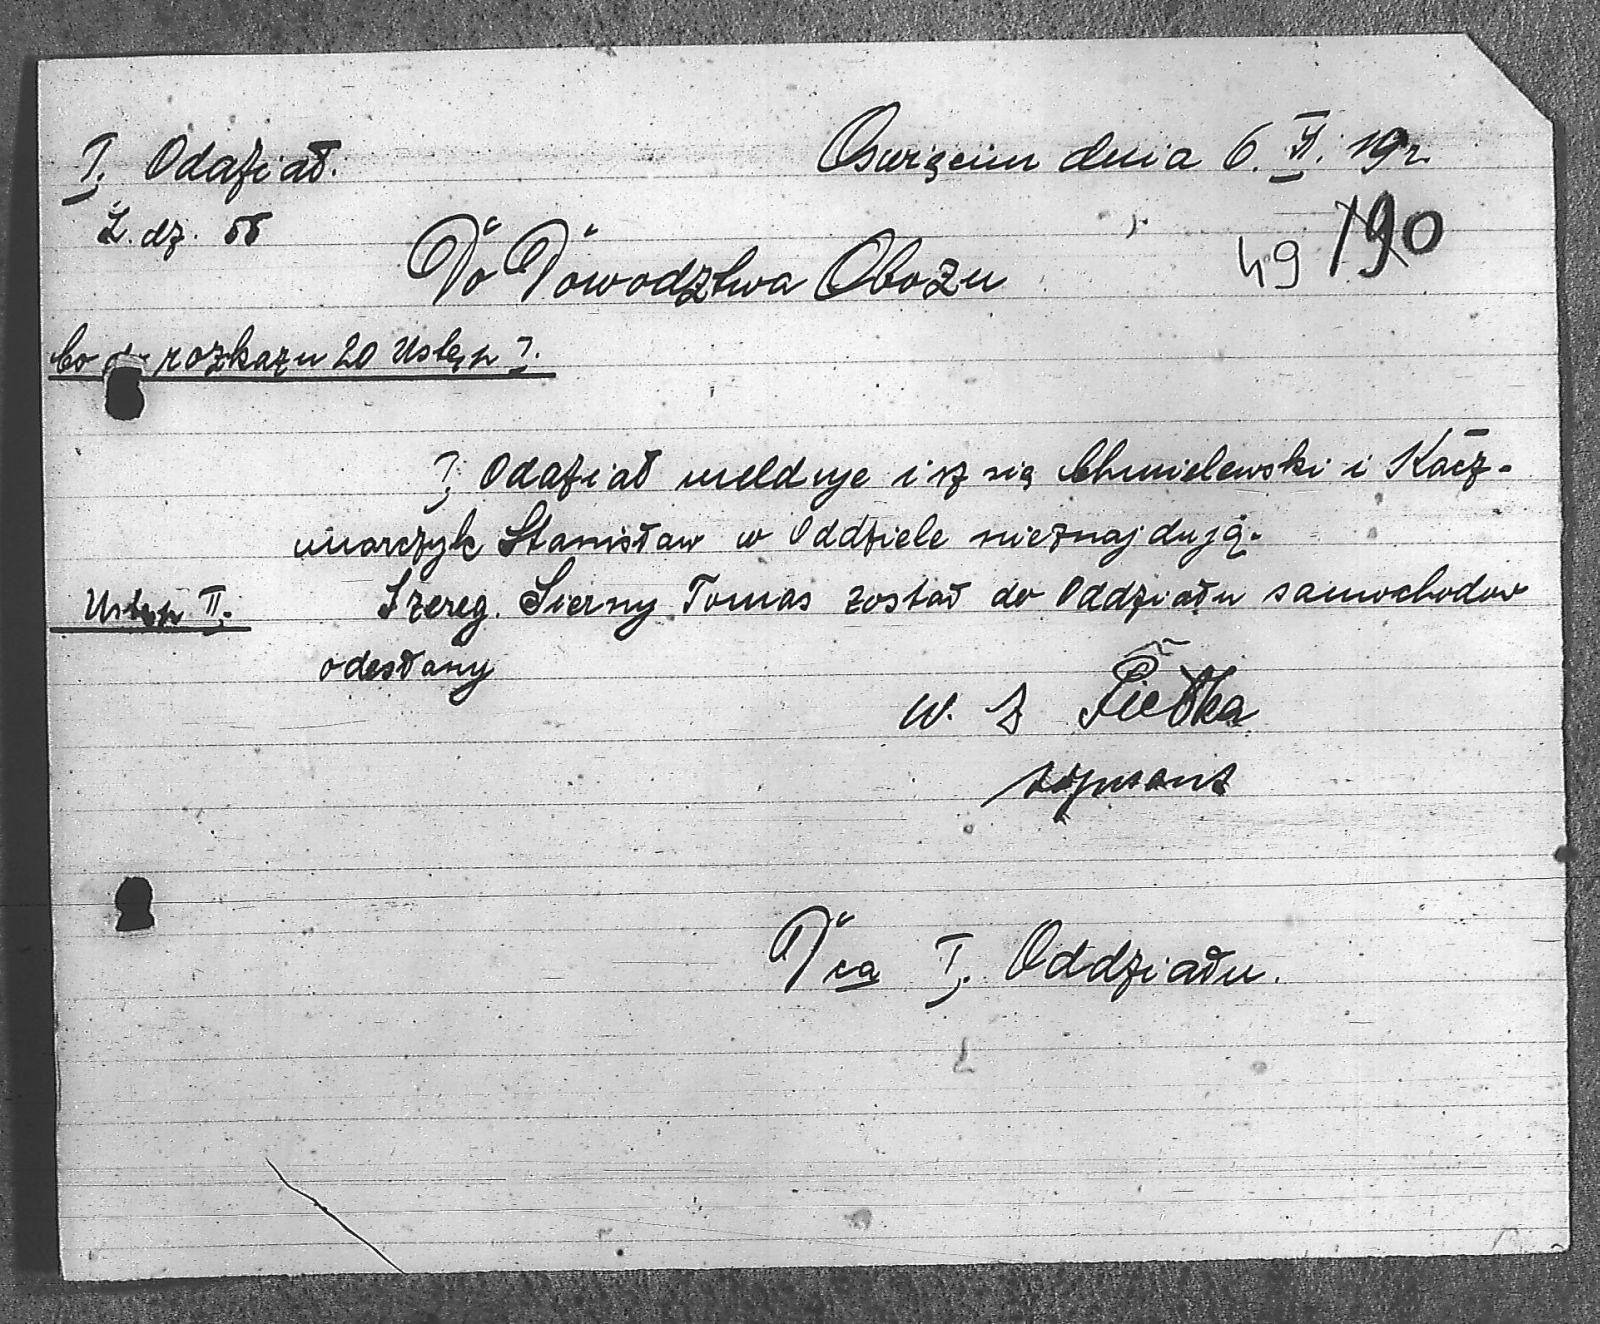 I. Oddział.
Oswięcim dnia 6. VI. 19 r.
L. dz. 55
Do Dowodztwa Obozu
49 190
Co do rozkazu 20 Ustęp I.
I. Oddział melduje isz się Chmielewski i Kacz-
marczyk Stanisław w Oddziele nieznajdują.
Ustęp II.
Szereg. Sierny Tomas zostad do Oddziału samochodow
odesłany
w. z Pietka
sierżant
Dca I. Oddziału.